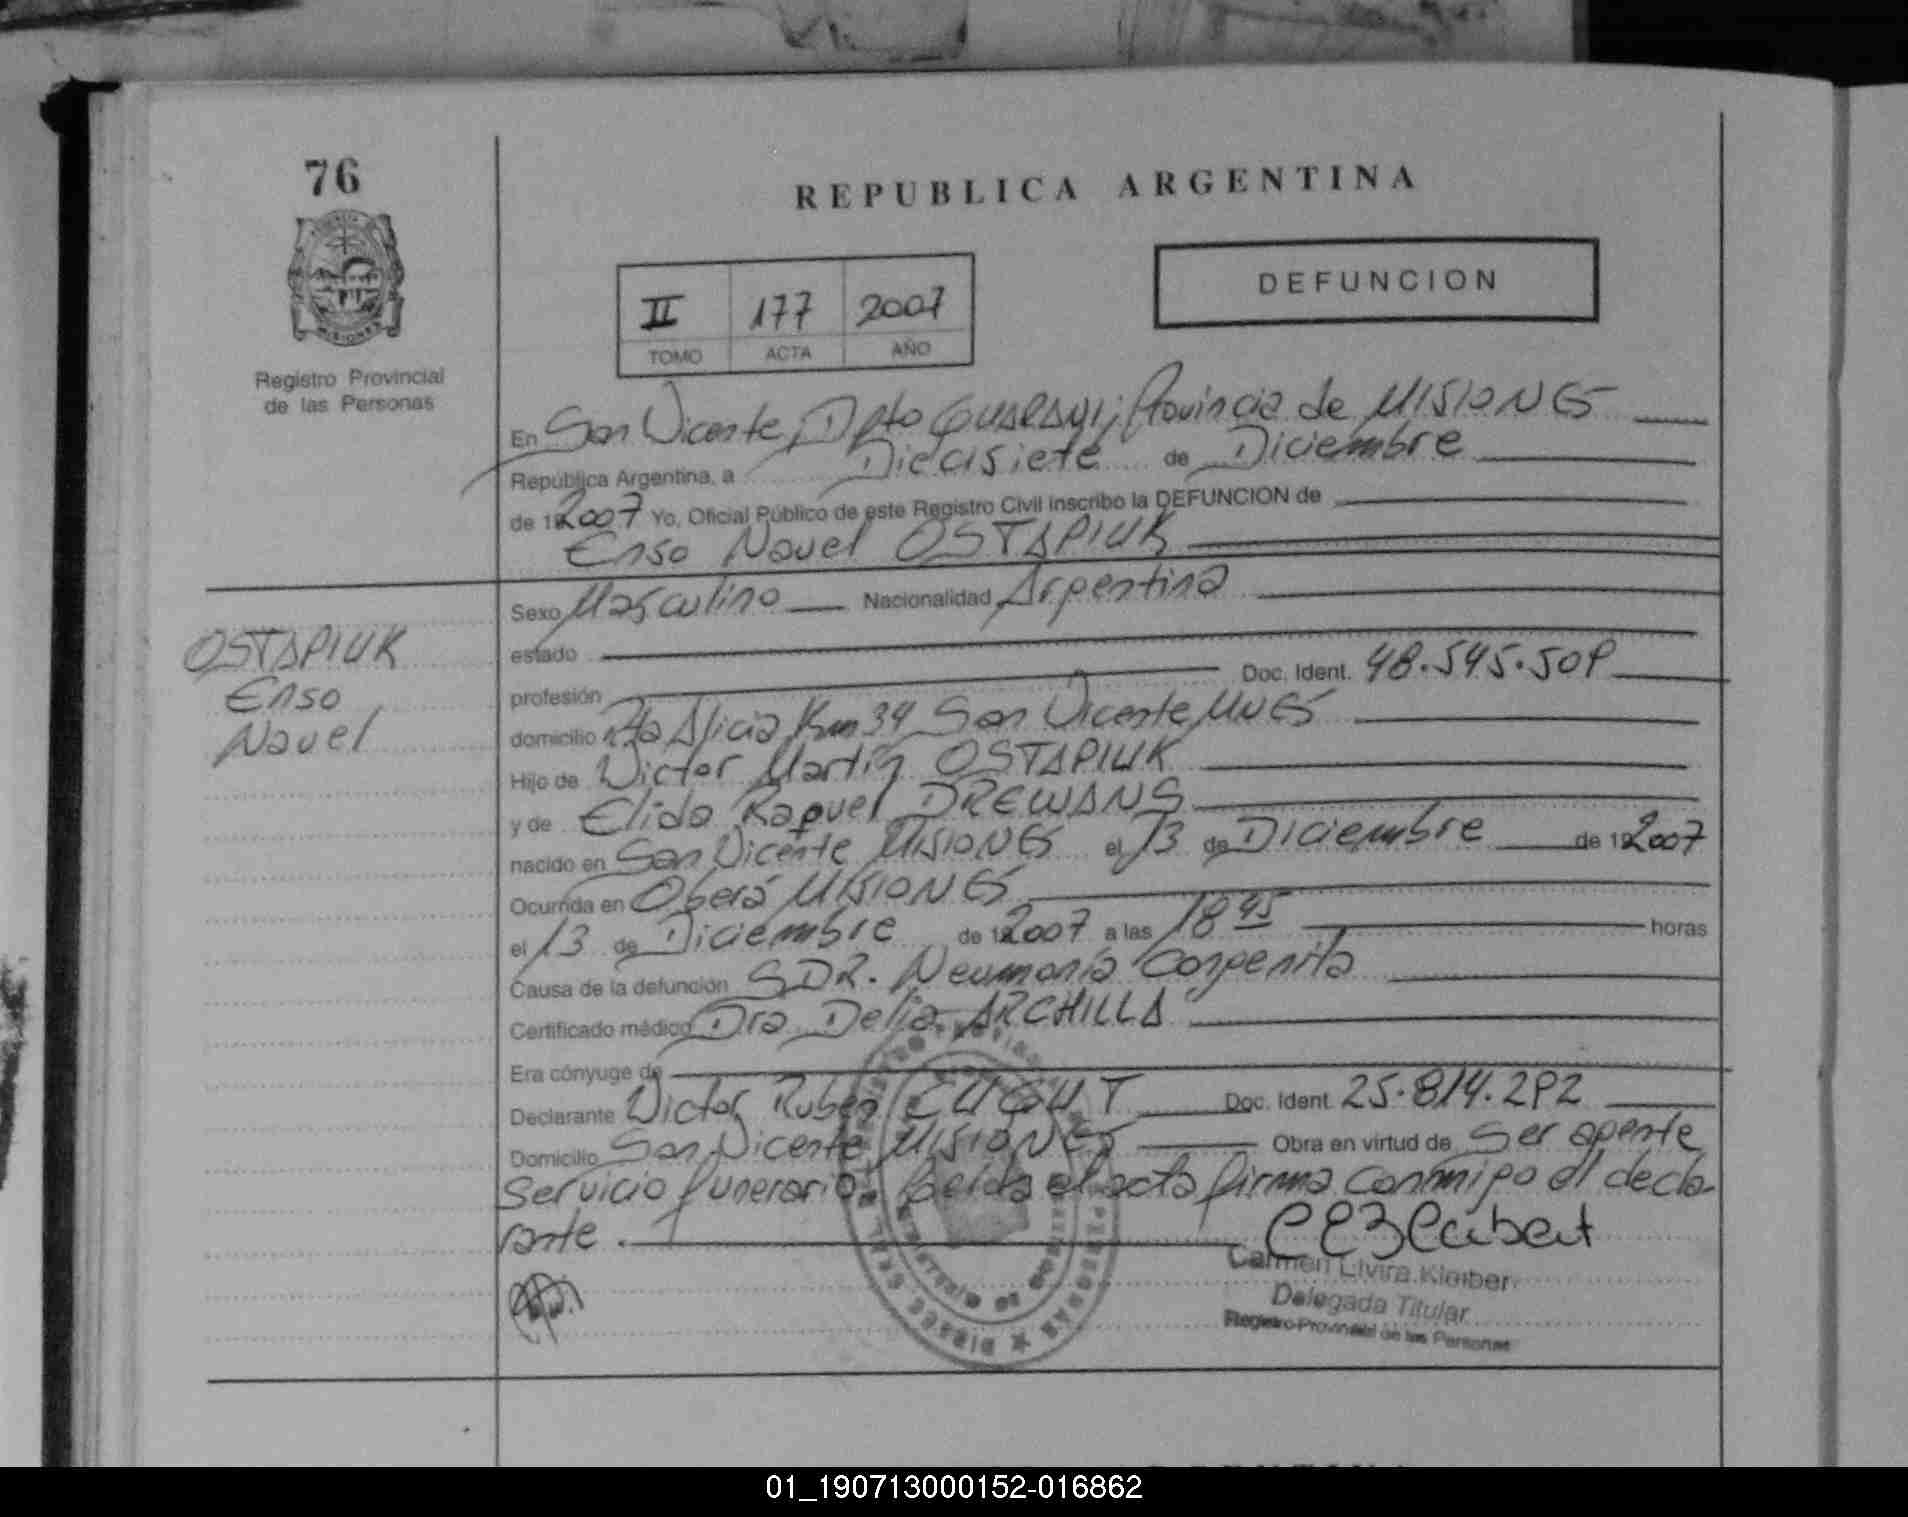 76
REPUBLICA ARGENTINA
DEFUNCION
II 177 2007
TOMO ACTA AÑO
Registro Provincial
de las Personas
En San Vicente, Dpto GUARANI, Provincia de MISIONES
República Argentina, a Diecisiete de Diciembre
de 192007 Yo, Oficial Público de este Registro Civil inscribo la DEFUNCION de
Enso Nauel OSTAPIUK
Sexo Masculino Nacionalidad Argentina
OSTAPIUK
Enso
Nauel
estado
profesión Doc. Ident. 48.545.509
domicilio Alicia Km 34 San Vicente MNES
Hijo de Victor Martín OSTAPIUK
y de Elida Raquel DREWANS
nacido en San Vicente MISIONES el 13 de Diciembre de 192007
Ocurrida en Oberá MISIONES
el 13 de Diciembre de 192007 a las 18 45 horas
Causa de la defunción SDR. Neumonía Congenita
Certificado médico Dra. Delia ARCHILLA
Era cónyuge de
Declarante Victor Ruben Doc. Ident. 25.814.292
Domicilio San Vicente MISIONES Obra en virtud de ser agente
servicio funerario. Leida el acta firma conmigo el decla-
rante.
Carmen Elvira Kleiber
Delegada Titular
Registro Provincial de las Personas
01_190713000152-016862